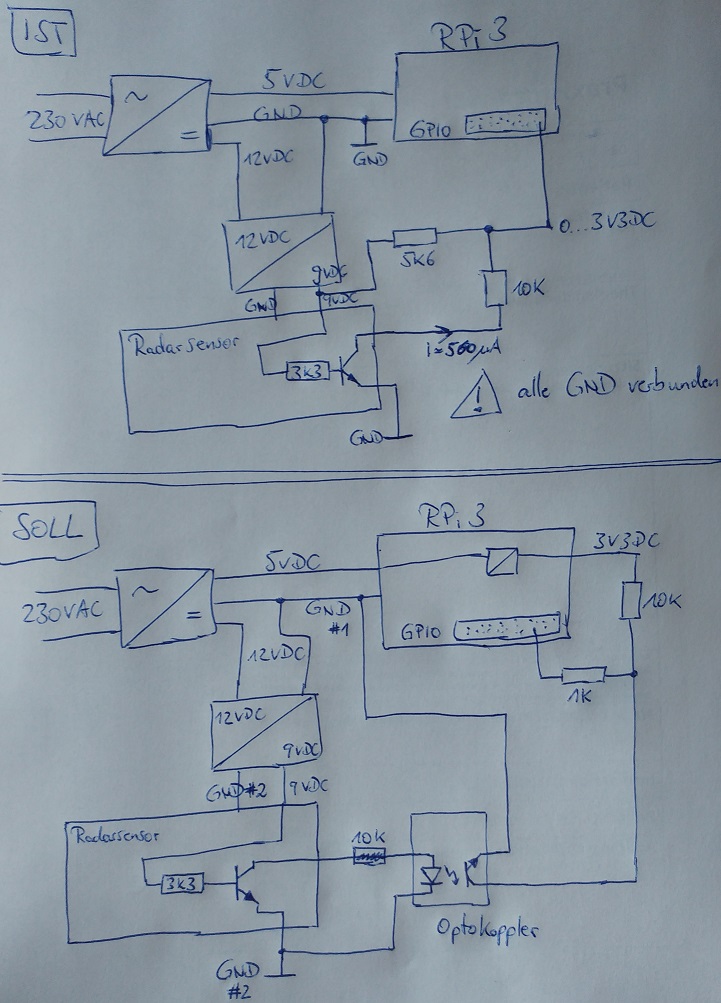 IST
RPi 3
5VDC
230VAC
~
=
GND
GPIO
GND
12VDC
0...3V3DC
12VDC
9VDC
5K6
10K
GND
9VDC
Radarsensor
i=560µA
3K3
! alle GND verbunden
GND
SOLL
RPi 3
5VDC
3V3DC
~
=
230VAC
GND
#1
GPIO
10K
12VDC
1K
12VDC
9VDC
GND#2
9VDC
Radarsensor
10K
3K3
Optokoppler
GND
#2